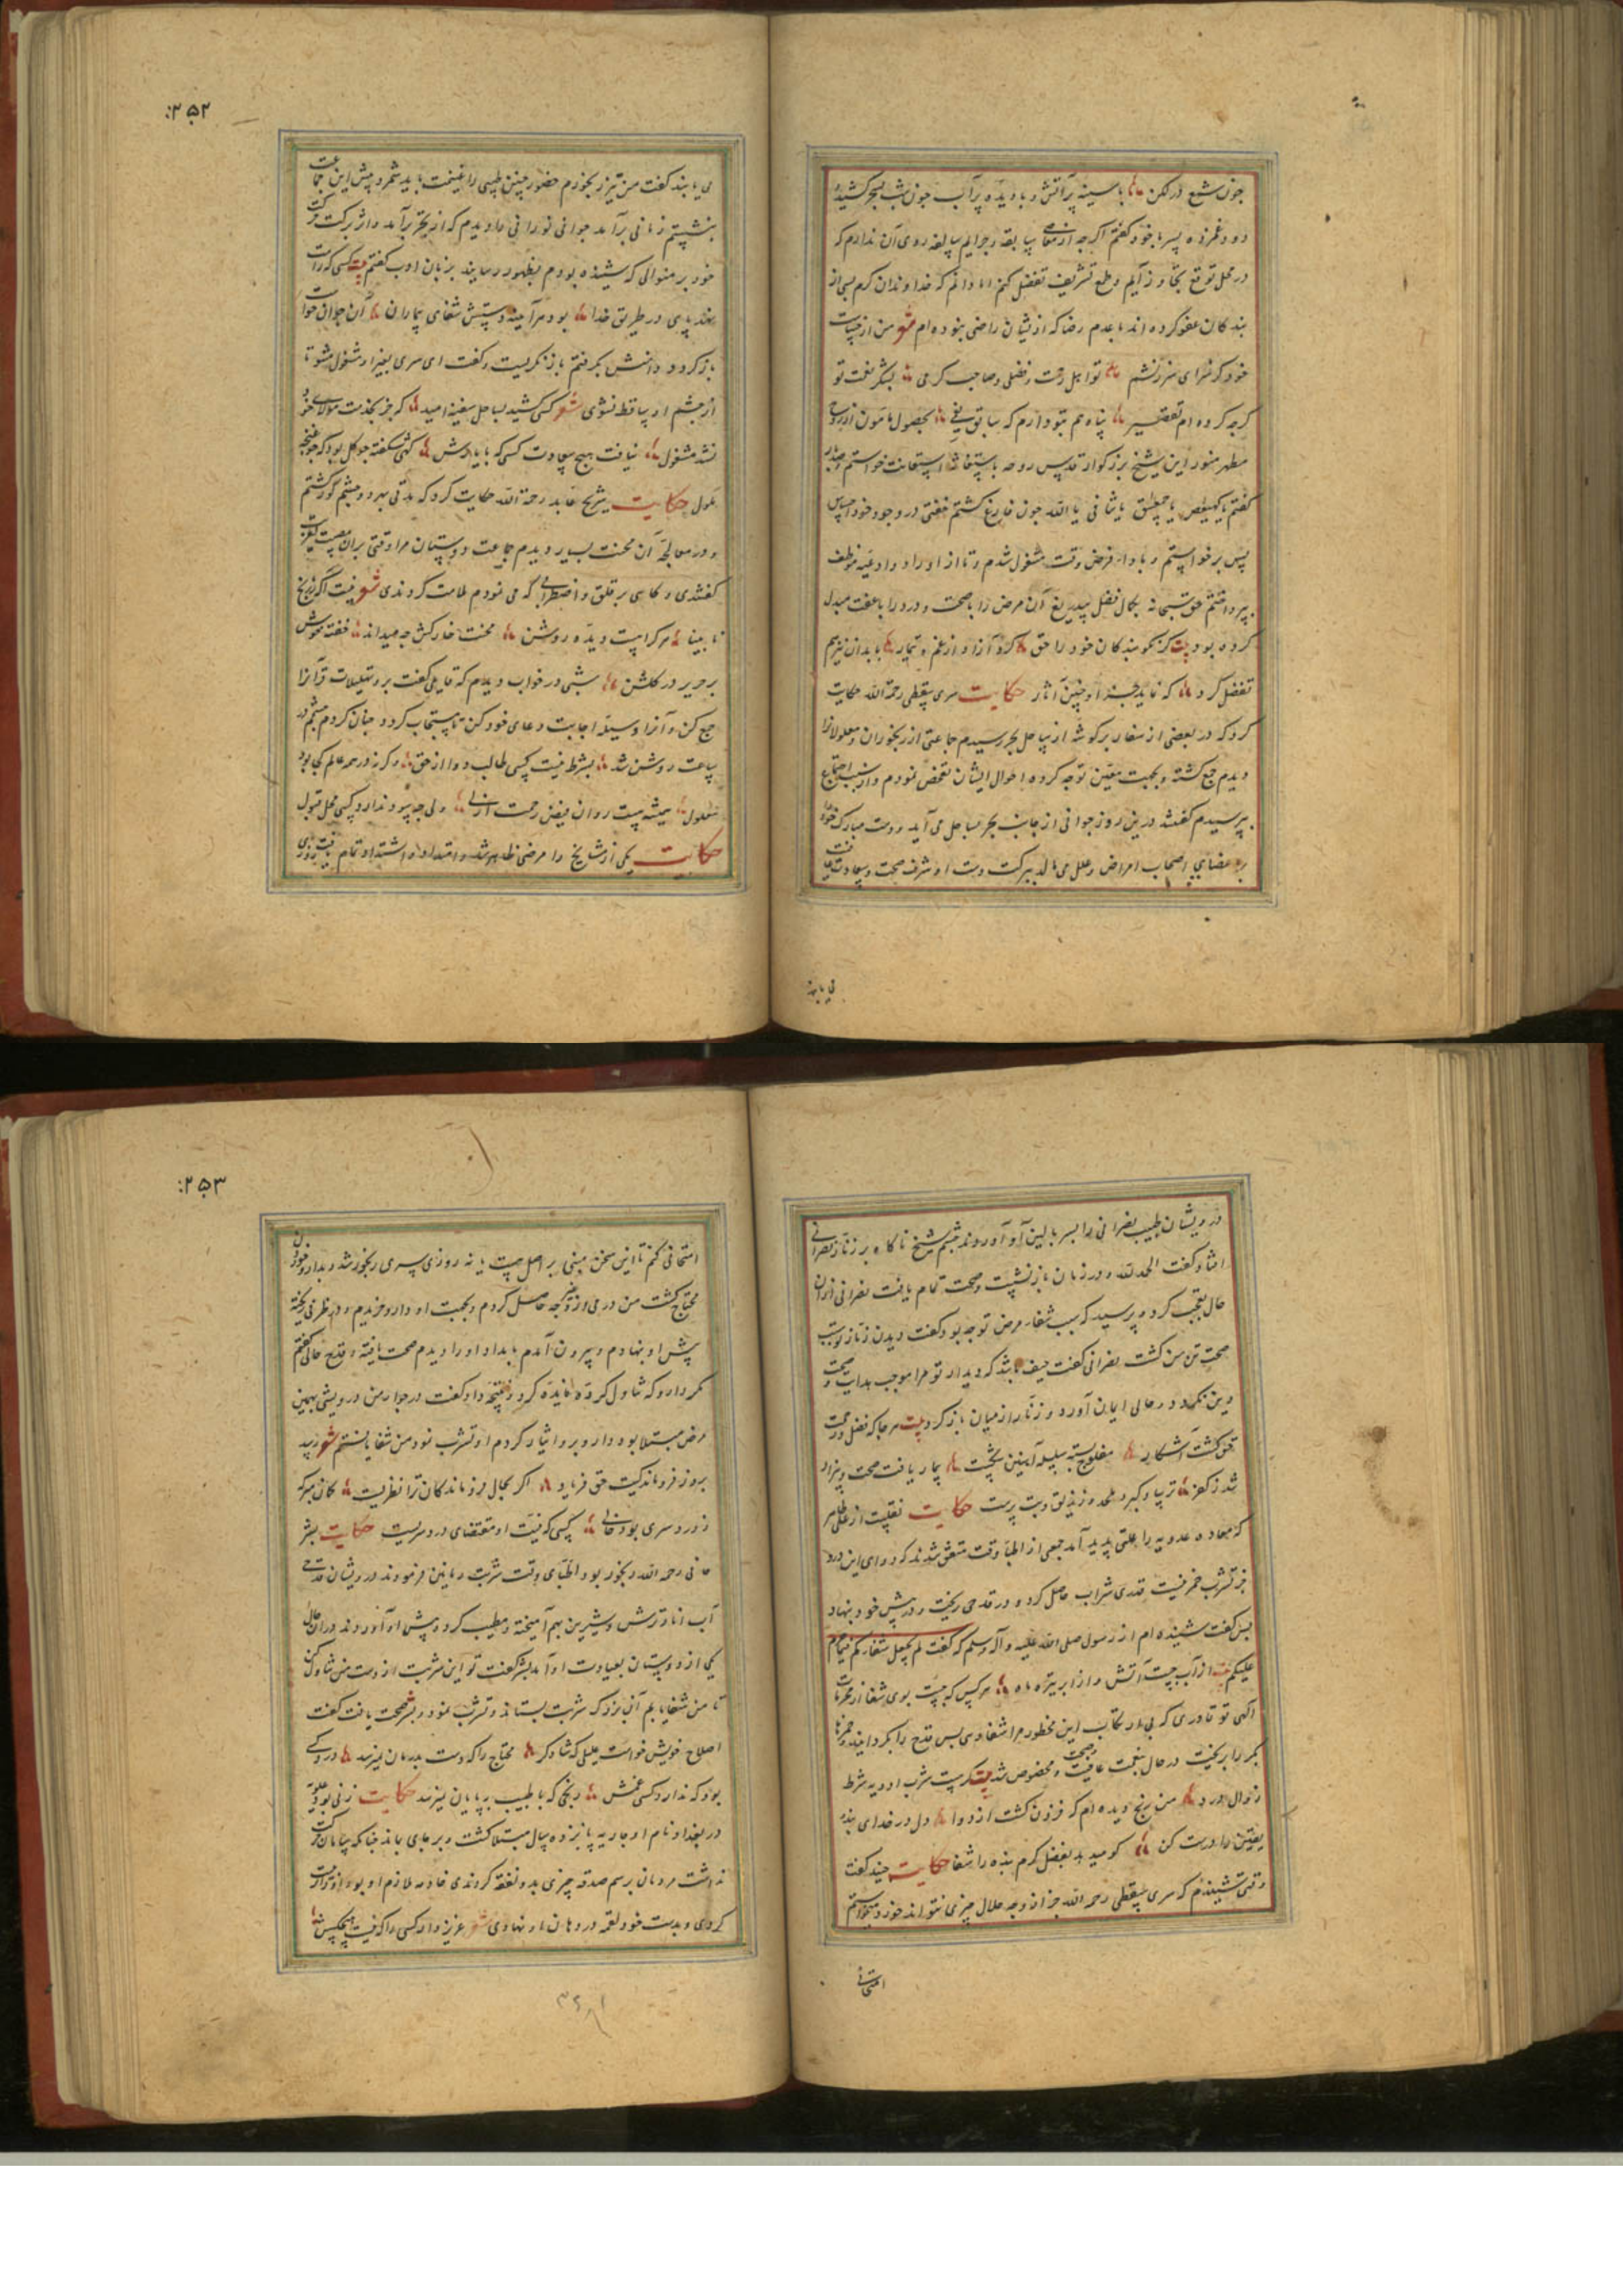 چون شمع در لکن با سینه پر آتش و با دیده پر آب چون شب بسحر کشیده
دود غمزده پس با خود گفتم اگرچه از معاصی سابقه و جرایم سالفه روی آن ندارم که
در محل توقع بتجاوز آیم و طمع تشریف تفضل کنم اما دانم که خداوندان کرم بسی از
بندگان عفو کرده اند با عدم رضا که از یشان راضی نبوده ام شعر من از
خود کر سزای سرزنشم تو اهل رحمت و فضلی و صاحب کرمی
کرچه کرده ام تقصیر پناه هم بتو دارم که
مطهر منور این شیخ بزرگوار قدس روحه استعانت خواستم
گفتم یا کهیعص یا حمعسق یا شافی یا الله چون فارغ گشتم خفتی در وجود خود احساس
پس برخواستم و بادا فرض وقت مشغول شدم و تا از اوراد و ادعیه موظف
بپرداختم حق سبحانه بکمال فضل بیدریغ آن مرض را با صحت و درد را با عفت مبدل
کرده بود بیت کر نکو بندکان خود را حق کرد آزاد از غم و تیمار با بدان نیز هم
تفضل کرد که نماید بجز او چنین آثار حکایت سری سقطی رحمة الله حکایت
کرد که در بعضی از سفار بر گوشه از ساحل بحر رسیدم جماعتی از رنجوران و معلولانرا
دیدم جمع گشته و بجهت معین توجه کرده احوال ایشان تفحص نمودم و از سبب اجتماع
بپرسیدم گفتند درین روز جوانی از جانب بحر بساحل می آید و دست مبارک خود
بر اعضای اصحاب امراض و علل می مالد ببرکت دست او شرف صحت و سعادت عافیت
می یابند
۲۵۲
می یابند گفت من نیز رنجورم حضور چنین طبیبی را غنیمت باید شمرد و پیش این جماعت
بنشستم زمانی برآمد جوانی نورانی را دیدم که از بحر برآمد و اثر برکت
خود بر منوالی که شنیده بودم بظهور رسانید بزبان ادب گفتم بیت کسی که راست
نهد پای در طریق خدا بود هر آینه دستش شفای بیماران آن جوان خواست
باز کردد دامنش بگرفتم باز نگریست و گفت ای سری بغیر او مشغول مشو تا
از چشم او ساقط نشوی شعر کسی کشید بساحل سفینه امید که جز بخدمت مولای خود
نشد مشغول نیافت هیچ سعادت کسی که با یادش کهی شکفته چو گل بود که چو غنچه
ملول حکایت شریح عابد رحمة الله حکایت کرد که مدتی بهر دو چشم کور گشتم
و در معالجه آن محنت بسیار دیدم جماعت دوستان مرا وقتی بران مصیبت تعزیت
گفتندی و گاهی بر قلق و اضطرابی که می نمودم ملامت کردندی شعر نیست آگه ز رنج
نابینا هر کرا هست دیده روشن محنت خارکش چه میداند خفته خوش
بر حریر در گلشن شبی در خواب دیدم که قایلی گفت برو تهلیلات قرآنرا
جمع کن و آنرا وسیله اجابت دعای خود کن تا مستجاب کردد چنان کردم چشمم در
ساعت روشن شد بشرط نیست کسی طالب دوا از حق وگرنه در همه عالم کجا بود
معلول همیشه هست روان فیض رحمت ازلی ولی چه سود ندارد کسی محل قبول
حکایت یکی از مشایخ را مرضی ظاهر شد و امتداد و اشتداد تمام یافت روزی
درویشان طبیب نصرانی را بسر بالین او آوردند چشم شیخ ناگاه بر زنار نصرانی
افتاد گفت الحمد لله و در زمان باز نشست و صحت تمام یافت نصرانی ازان
حال تعجب کرد و پرسید که سبب شفاء مرض تو چه بود گفت دیدن زنار تو سبب
صحت تن من گشت نصرانی گفت حیف باشد که دیدار تو مرا موجب هدایت و صحت
دین نکردد در حال ایمان آورد و زنار از میان باز کرد بیت هر جا که فضل و رحمت
حق گشت آشکار مفلوج بسته سلسله آهنین بیمار یافت صحت و بیزار
شد ز کفر ترسا و کبر و ملحد و زندیق و بت پرست حکایت نقلست از علی طاهر
که معاده عدویه را علتی پدید آمد جمعی از اطباء وقت متفق شدند که دوای این درد
جز تشرب خمر نیست قدری شراب حاصل کرد و در قدحی ریخت و در پیش خود بنهاد
پس گفت شنیده ام از رسول صلی الله علیه و آله وسلم که گفت لم یجعل شفاءکم فیما حرم
علیکم بیت از آب جست آتش و از ابر تیره ماه هر کس که جست بوی شفا از محرمات
الهی تو قادری که بی ارتکاب این محظور مرا شفا دهی پس قدح را بکردانید و خمر را
بریخت در حال بنعمت عافیت و صحت مخصوص شد بیت کر هست شرب ادویه شرط
زوال درد من رنج دیده ام که فزون گشت از دوا دل در خدای بند
یقین را درست کن کو میدهد بفضل کرم بنده را شفا حکایت جنید گفت
وقتی شنیدم که سری سقطی رحمه الله جز از وجه حلال چیزی نتواند خورد میخواستم
امتحانی
۲۵۳
امتحانی کنم تا این سخن مبنی بر اصل هست یا نه روزی سری رنجور شد و بدارو خوردن
محتاج گشت من درمی از وجه حاصل کردم و بجهت او دارو خریدم و در ظرفی ریخته
پیش او بنهادم و بیرون آمدم بامداد او را دیدم صحت یافته و قدح خالی گفتم
مگر دارو که تناول کردهٔ فایده کرد و نتیجه داد گفت در جوار من درویشی بهمین
مرض مبتلا بود دارو برو ایثار کردم او تشرب نمود من شفا یافتم شعر رسید
بروز فروماندگیت حق فریاد اگر بحال فروماندگان ترا نظریست گمان مبر که
ز درد سری بود خالی کسی که نیت او مقتضای دردسریست حکایت بشر
حافی رحمه الله رنجور بود اطبای وقت شربت رمانین فرمودند درویشان قدحی
آب انار ترش و شیرین بهم آمیخته و مطیب کرده پیش او آوردند در آن حال
یکی از دوستان بعیادت او آمد بشر گفت تو این شربت از دست من تناول کن
تا من شفا یابم آن مرد که شربت بستاند و تشرب نمود و بشر صحت یافت گفت
اصلاح خویش خواست علیلی که شاد کرد محتاج را که دست بدرمان نمیرسد دردی
بود که ندارد کسی غمش رنجی که با طبیب بپایان نمیرسد حکایت زنی بود علویه
در بغداد نام او جاریه پانزده سال مبتلا گشت و بر جای بماند چنانکه سامان حرکت
نداشت مردمان برسم صدقه چیزی بدو نفقه کردندی خادمه ملازم او بود
کردی و بدست خود لقمه در دهان او نهادی شعر عزیز دار کسی را که نیست هیچکسش